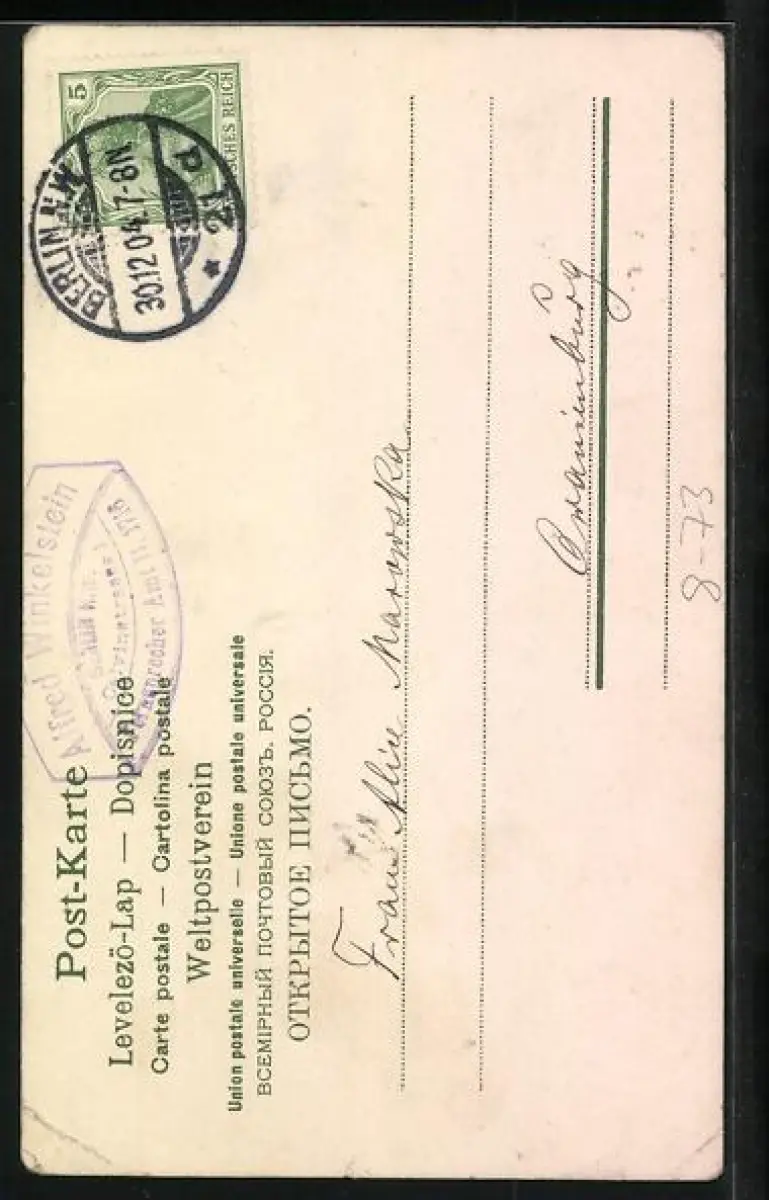 Post-Karte
Levelező-Lap — Dopisnice
Carte postale — Cartolina postale
Weltpostverein
Union postale universelle — Unione postale universale
ВСЕМІРНЫЙ ПОЧТОВЫЙ СОЮЗЪ. РОССІЯ.
ОТКРЫТОЕ ПИСЬМО.
Alfred Winkelstein
Fernsprecher Amt II. 1718
5
DEUTSCHES REICH
BERLIN N.W.
30.12.04.7-8N.
* 21 d
Frau Marowska
Oranienburg
8-73